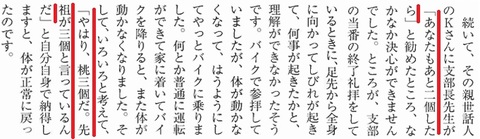 続いて、その親世話
のKさんに支部長先生が
「あなたもあと二個した
ら」と勧めたところ、な
かなか決心ができません
でした。ところが、支部
の当番の終了礼拝をして
いるときに、足先から全身
に向かってしびれが起き
て、何事が起きたかと、
理解ができなかったそう
です。バイクで参拝して
いましたが、体が動かな
くなって、はうようにし
てやっとバイクに乗りま
した。何とか普通に運転
ができて家に着いてバイ
クを降りると、また体が
動かなくなりました。そ
して、いろいろと考えて、
「やはり、桃三個だ。先
祖が三個と言っているん
だ」と自分自身で納得し
ますと、体が正常に戻っ
たのです。